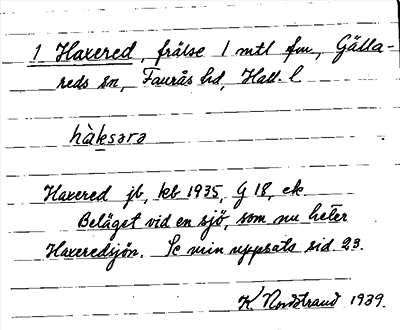 1 Haxered, frälse 1 mtl fm, Gälla-
reds sn, Faurås hd, Hall. l.
hàksərə
Haxered jb, kb 1935, G 18, ek.
Beläget vid en sjö, som nu heter
Haxeredsjön. Se min uppsats sid 23.
K. Nordstrand 1939.